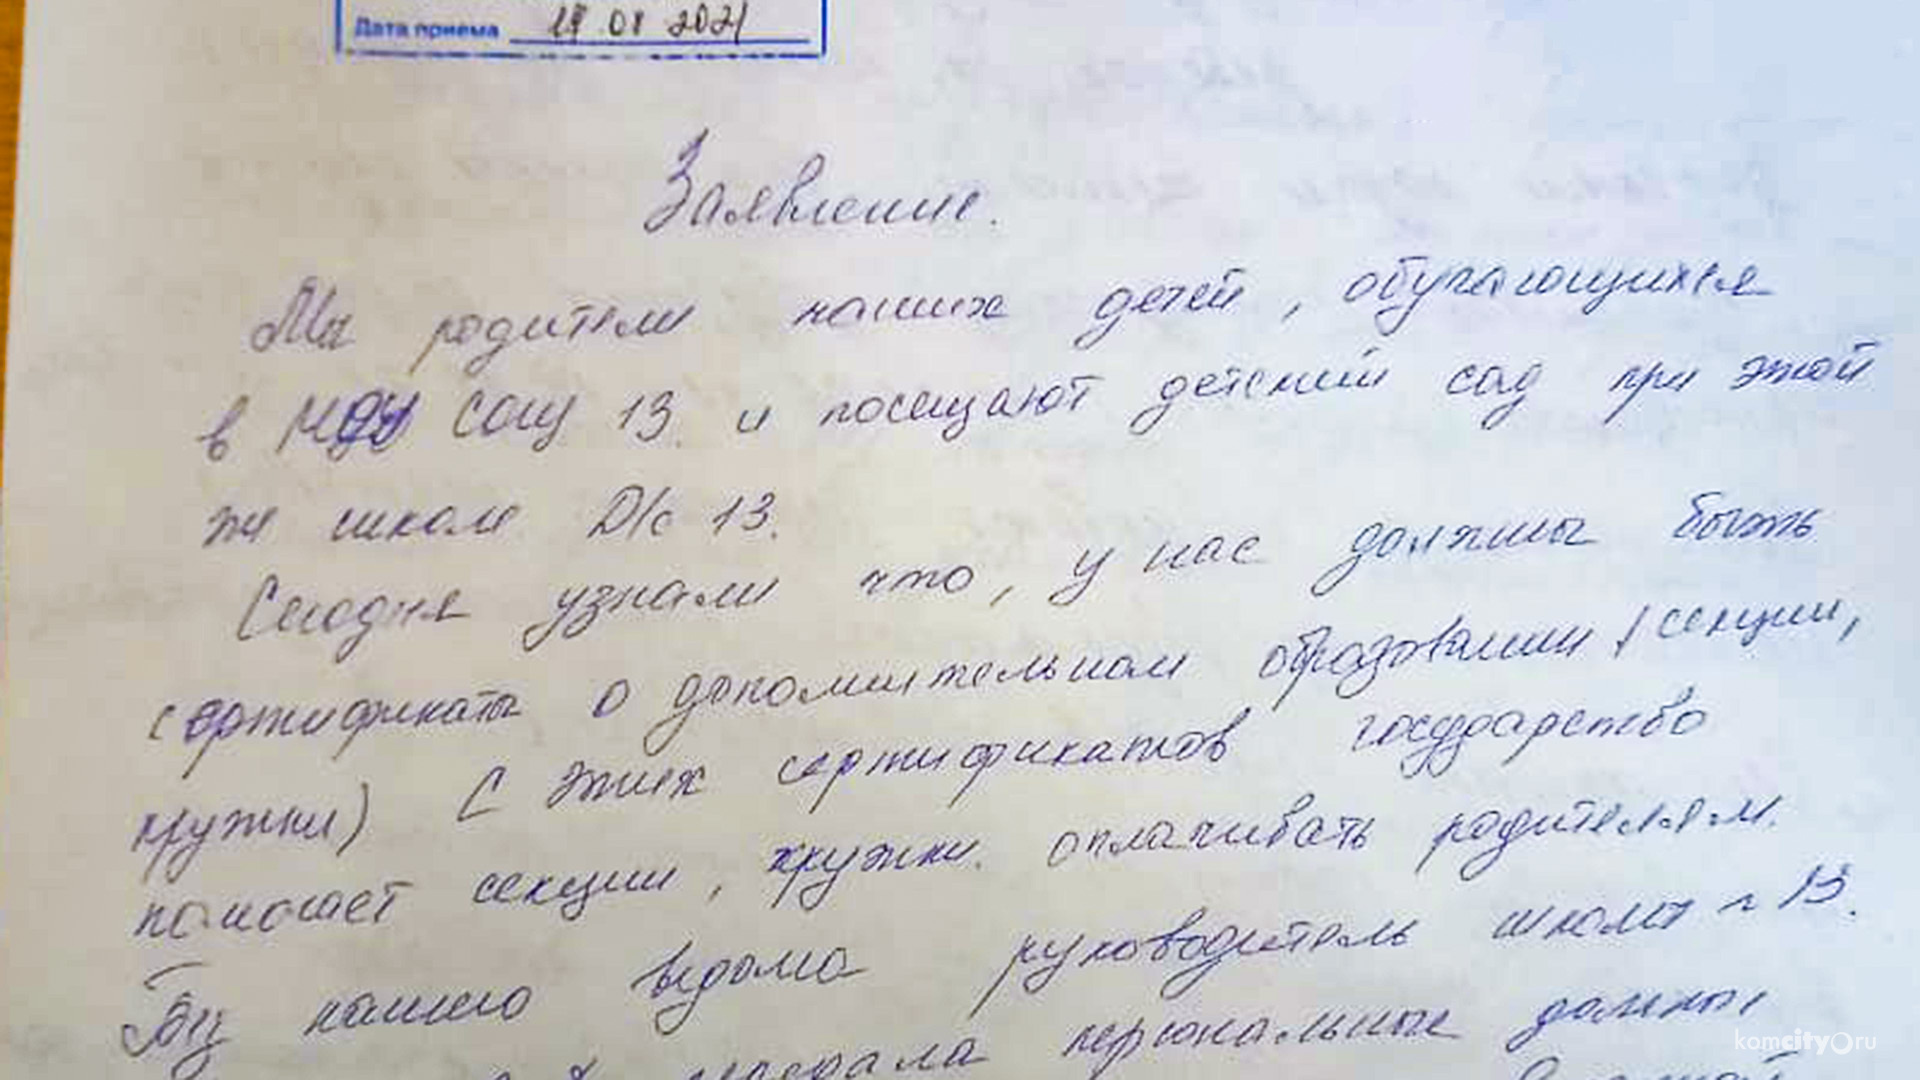 Дата приема 19 01 2021
Заявление.
Мы родители наших детей, обучающихся
в МОУ Сош 13. и посещают детский сад при этой
же школе Д/с 13.
Сегодня узнали что, у нас должны быть
сертификаты о дополнительном образовании (секции,
кружки) С этих сертификатов государство
помогает секции, кружки. оплачивать родителям.
Без нашего ведома руководитель школы 13.
передала персональные данные
komcity.ru